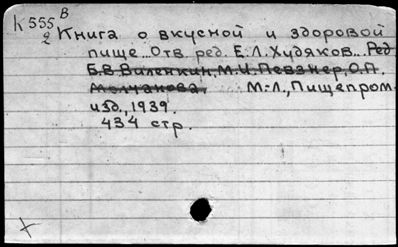 h 555 В
2
Книга о вкусной и здоровой
пище...Отв. ред. Е.Л.Худяков...Ред
Б.В.Виленкин, М.И.Певзнер, О.П.
Молчанова. М.-Л., Пищепром-
изд., 1939.
434 стр.